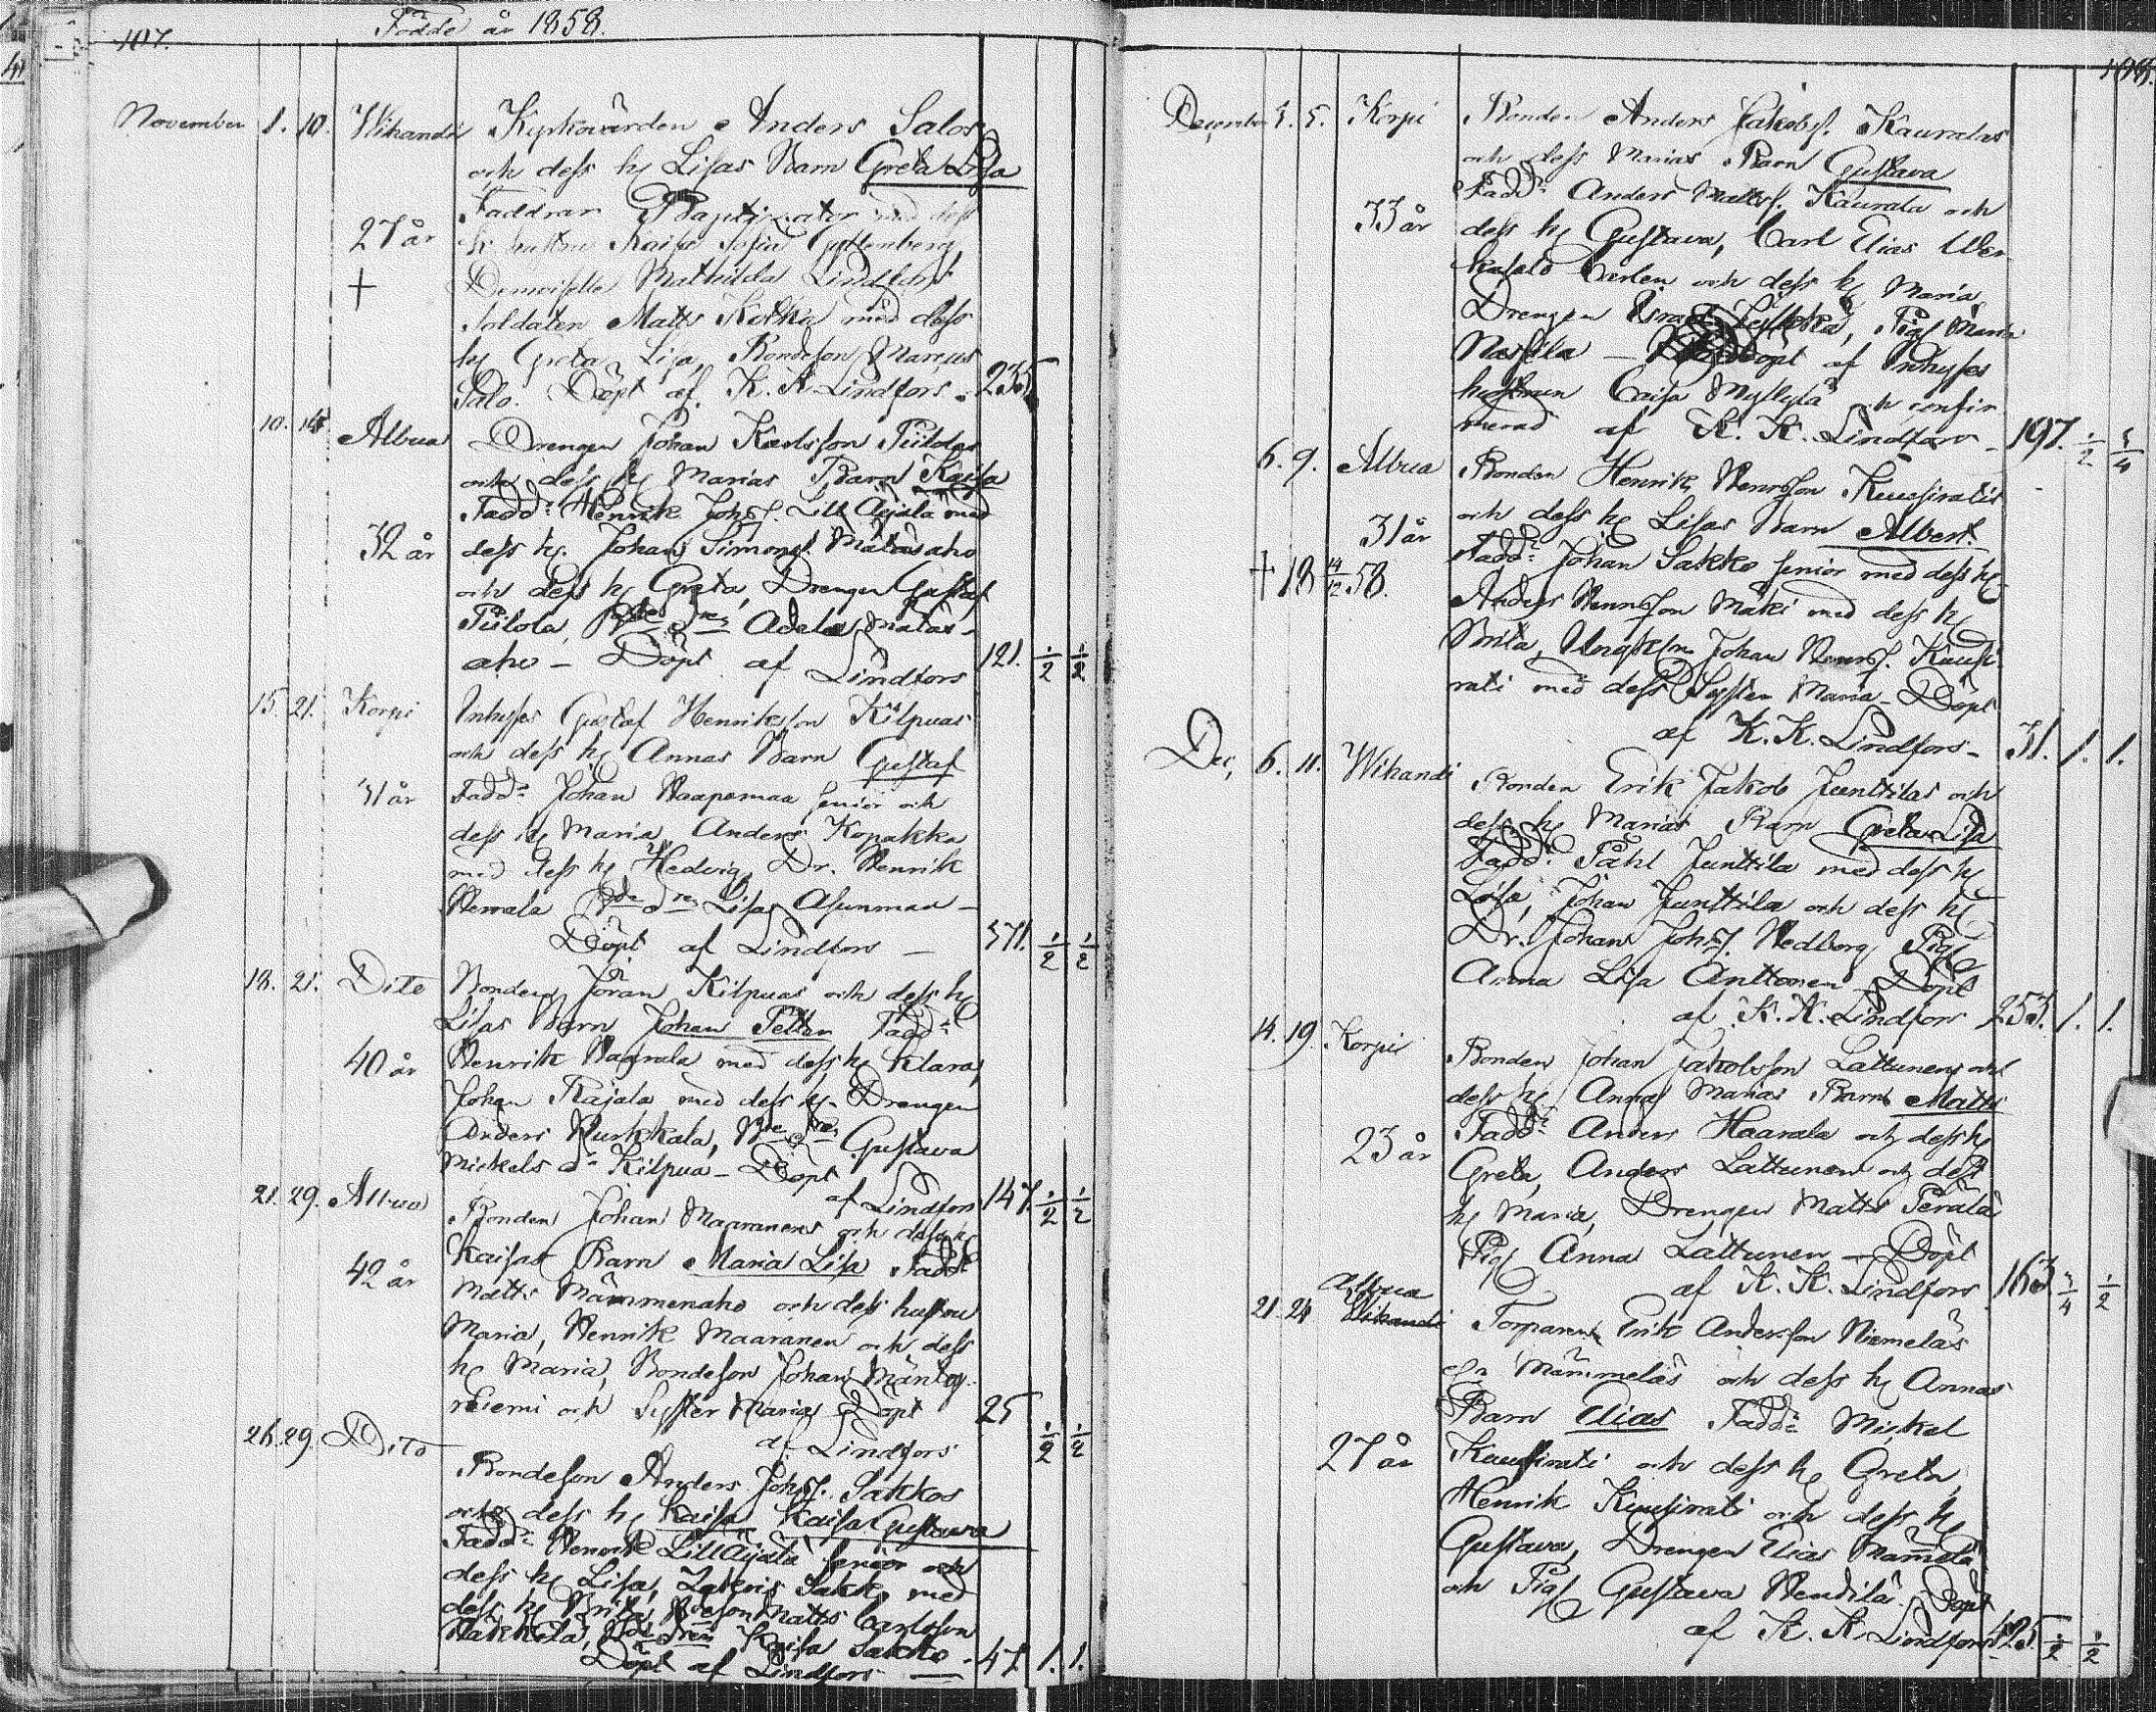 107.
Födde år 1858.
November 1. 10. Wihandi Kyrkovärden Anders Salos
och dess h Lisas Barn Greta Lisa
Faddrar Baptizator med dess
27 år k. hustru Kaisa Sofia Gyllenberg
+ Demoiselle Mathilda Lindfors
Soldaten Matts Kolka med dess
h Greta Lisa, Bondeson Marcus
Salo. Döpt af K. K. Lindfors. 235
10. 14 Albua Drengen Johan Karlsson Piilolas
och dess h Marias Barn Kaisa
Fadd: Henrik Johss. Lill Äijälä med
32 år dess h. Johan Simonss. Matasaho
och dess h Greta, Drengen Gustaf
Piilola, Bde Dren Adela Matas-
aho - Döpt af Lindfors 121. 1/2 1/2
15. 21. Korpi Inhyses Gustaf Henriksson Kilpuas
och dess h Annas Barn Gustaf
31 år Fadd: Johan Haapamaa senior och
dess h Maria, Anders Kopakka
med dess h Hedvig, Dr. Henrik
Herrala Bde Dren Lisa Asunmaa -
Döpt af Lindfors - 371. 1/2 1/2
18. 21. Dito Bonden Jöran Kilpuas och dess h
Lisas Barn Johan Petter Fadd:
40 år Henrik Haarala med dess h Klara,
Johan Rajala med dess h. Drengen
Anders Kurkkala, Bde Dren Gustava
Mickels dr Kilpua - Döpt
af Lindfors 147. 1/2 1/2
21. 29. Albua Bonden Johan Maaranens och dess h
Kaisas Barn Maria Lisa Fadd:
42 år Matts Mämmenaho och dess hustru
Maria, Henrik Maaranen och dess
h Maria, Bondeson Johan Mänty-
niemi och Syster Maria Döpt 25
af Lindfors 1/2 1/2
26. 29. Dito Bondeson Anders Johss. Sakkos
och dess h Kaisa Kaisa Gustava
Fadd: Henrik Lill Äijälä senior och
dess h Lisa, Zakris Sakko med
dess h Brita, Bdeson Matts Carlsson
Bde Dren Kaisa Sakko -
Döpt af Lindfors - 47 1. 1.
December 3. 5. Korpi Bonden Anders Jakobss. Kauralas
och dess Marias Barn Gustava
Fadd: Anders Mattss. Kaurala och
33 år dess h Gustava, Carl Elias
Carlen och dess h Maria,
Drengen Israel Pig Maria
Nassila - döpt af Inhyses
hustrun Caisa Myllylä och confir-
merad af K. K. Lindfors - 197. 1/2 3/4
6. 9. Albua Bonden Henrik Henrsson Kuusiratis
och dess h Lisas Barn Albert.
31 år Fadd: Johan Sakko senior med dess h
+ 18 14/12 58. Anders Hennsson Mäki med dess h
Brita, Ungkln Johan Henrss. Kuusi-
rati med dess Syster Maria - Döpt
af K. K. Lindfors - 31. 1. 1.
Dec, 6. 11. Wihandi Bonden Erik Jakob Junttilas och
dess h Marias Barn Greta Lisa
Fadd: Påhl Junttila med dess h
Lisa, Johan Junttila och dess h
Dr. Johan Johss. Hedberg Pig
Anna Lisa Anttonen Döpt
af K. K. Lindfors 253. 1. 1.
14. 19 Korpi Bonden Johan Jakobsson Lattunens och
dess h Anna Marias Barn Matts
Fadd: Anders Haarala och dess h
23 år Greta, Anders Lattunen och dess
h Maria, Drengen Matts Perälä
Pig Anna Lattunen - Döpt
af K. K. Lindfors 163 3/4 1/2
Albua
21. 24 Wihandi Torparen Erik Andersson Niemeläs
Mämmeläs och dess h Annas
Barn Elias Fadd: Mickel
27 år Kuusirati och dess h Greta,
Henrik Kuusirati och dess h
Gustava, Drengen Elias Mämelä
och Pig Gustava Hendilä. Döpt
af K. K. Lindfors 425. 1/2 1/2